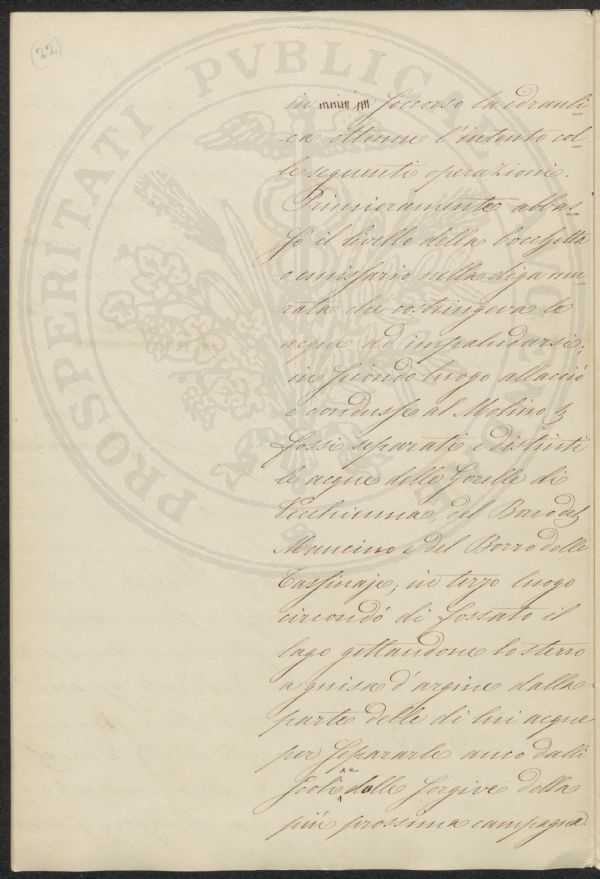 (22)
PROSPERITATI PVBLICAE
in soccorso la idrauli-
ca ottenne l'intento col-
le seguenti operazioni.
Primieramente abbas-
sò il livello della bocchetta
o emissario nella diga mu-
rata che costringeva le
acque ad impaludarsi;
in secondo luogo allacciò
e condusse al Molino
fossi separati e distinti
le acque delle Gorelle di
Vecchienna, del Borro del
Mancino e del Borro delle
Tassinaje; in terzo luogo
circondò di fossato il
lago gettandone lo sterro
a guisa d'argine dalla
parte delle di lui acque
per separarle anco dalli
scoli e dalle sorgive della
più prossima campagna